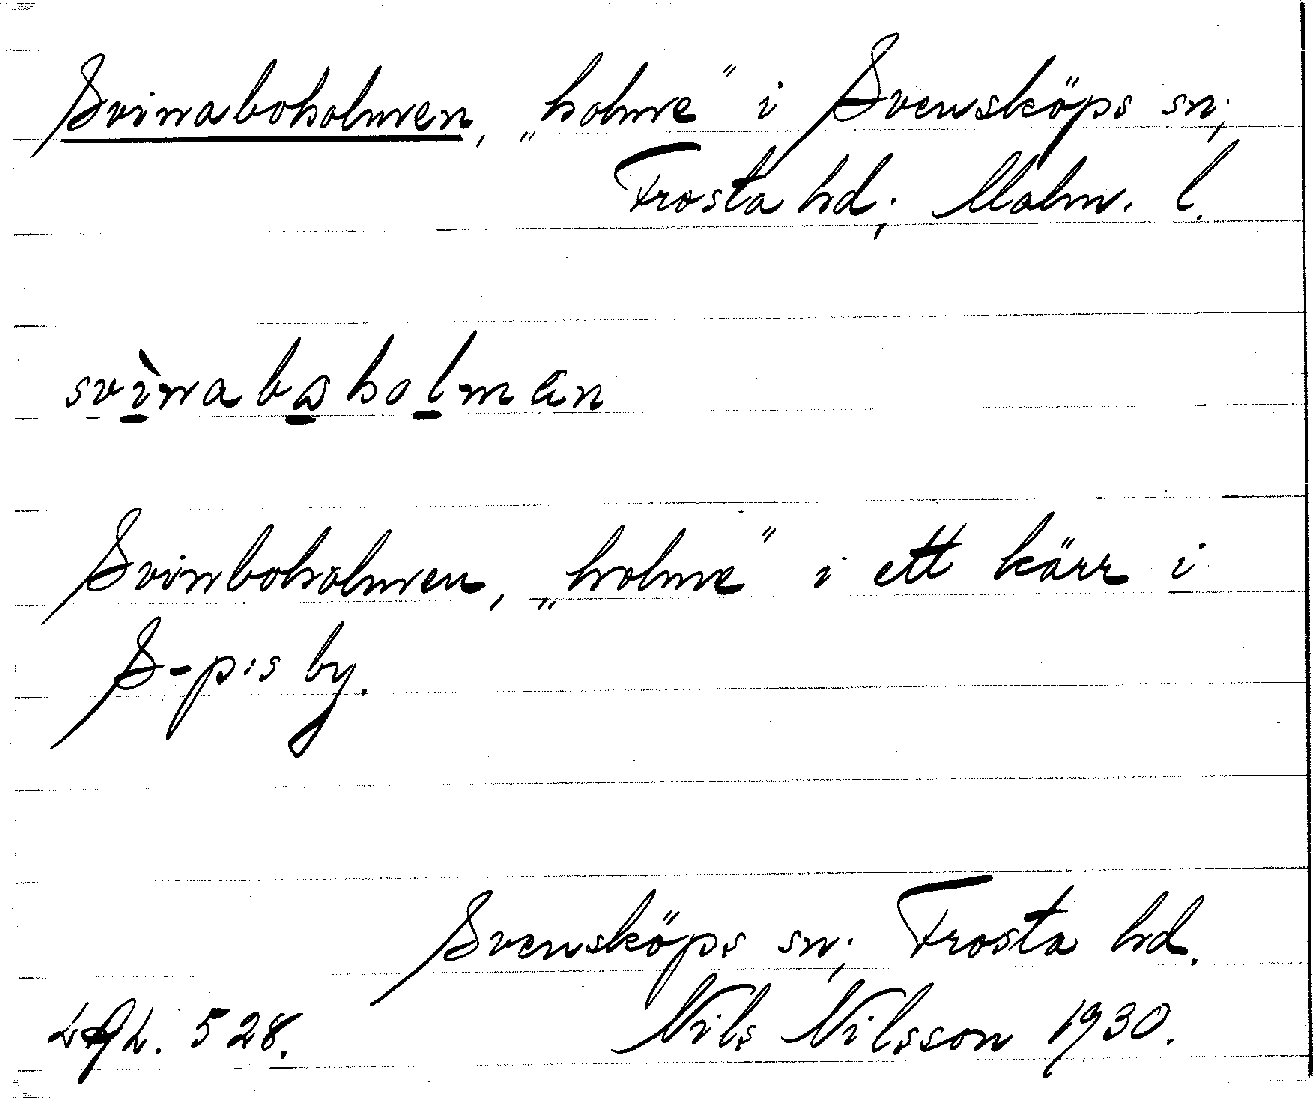 Svinaboholmen, „holme” i Svensköps sn,
Frosta hd, Malm. l.
svìnabɷholmän
Svinboholmen, „holme” i ett kärr i
S-p:s by.
Svensköps sn, Frosta hd.
528. Nils Nilsson 1930.